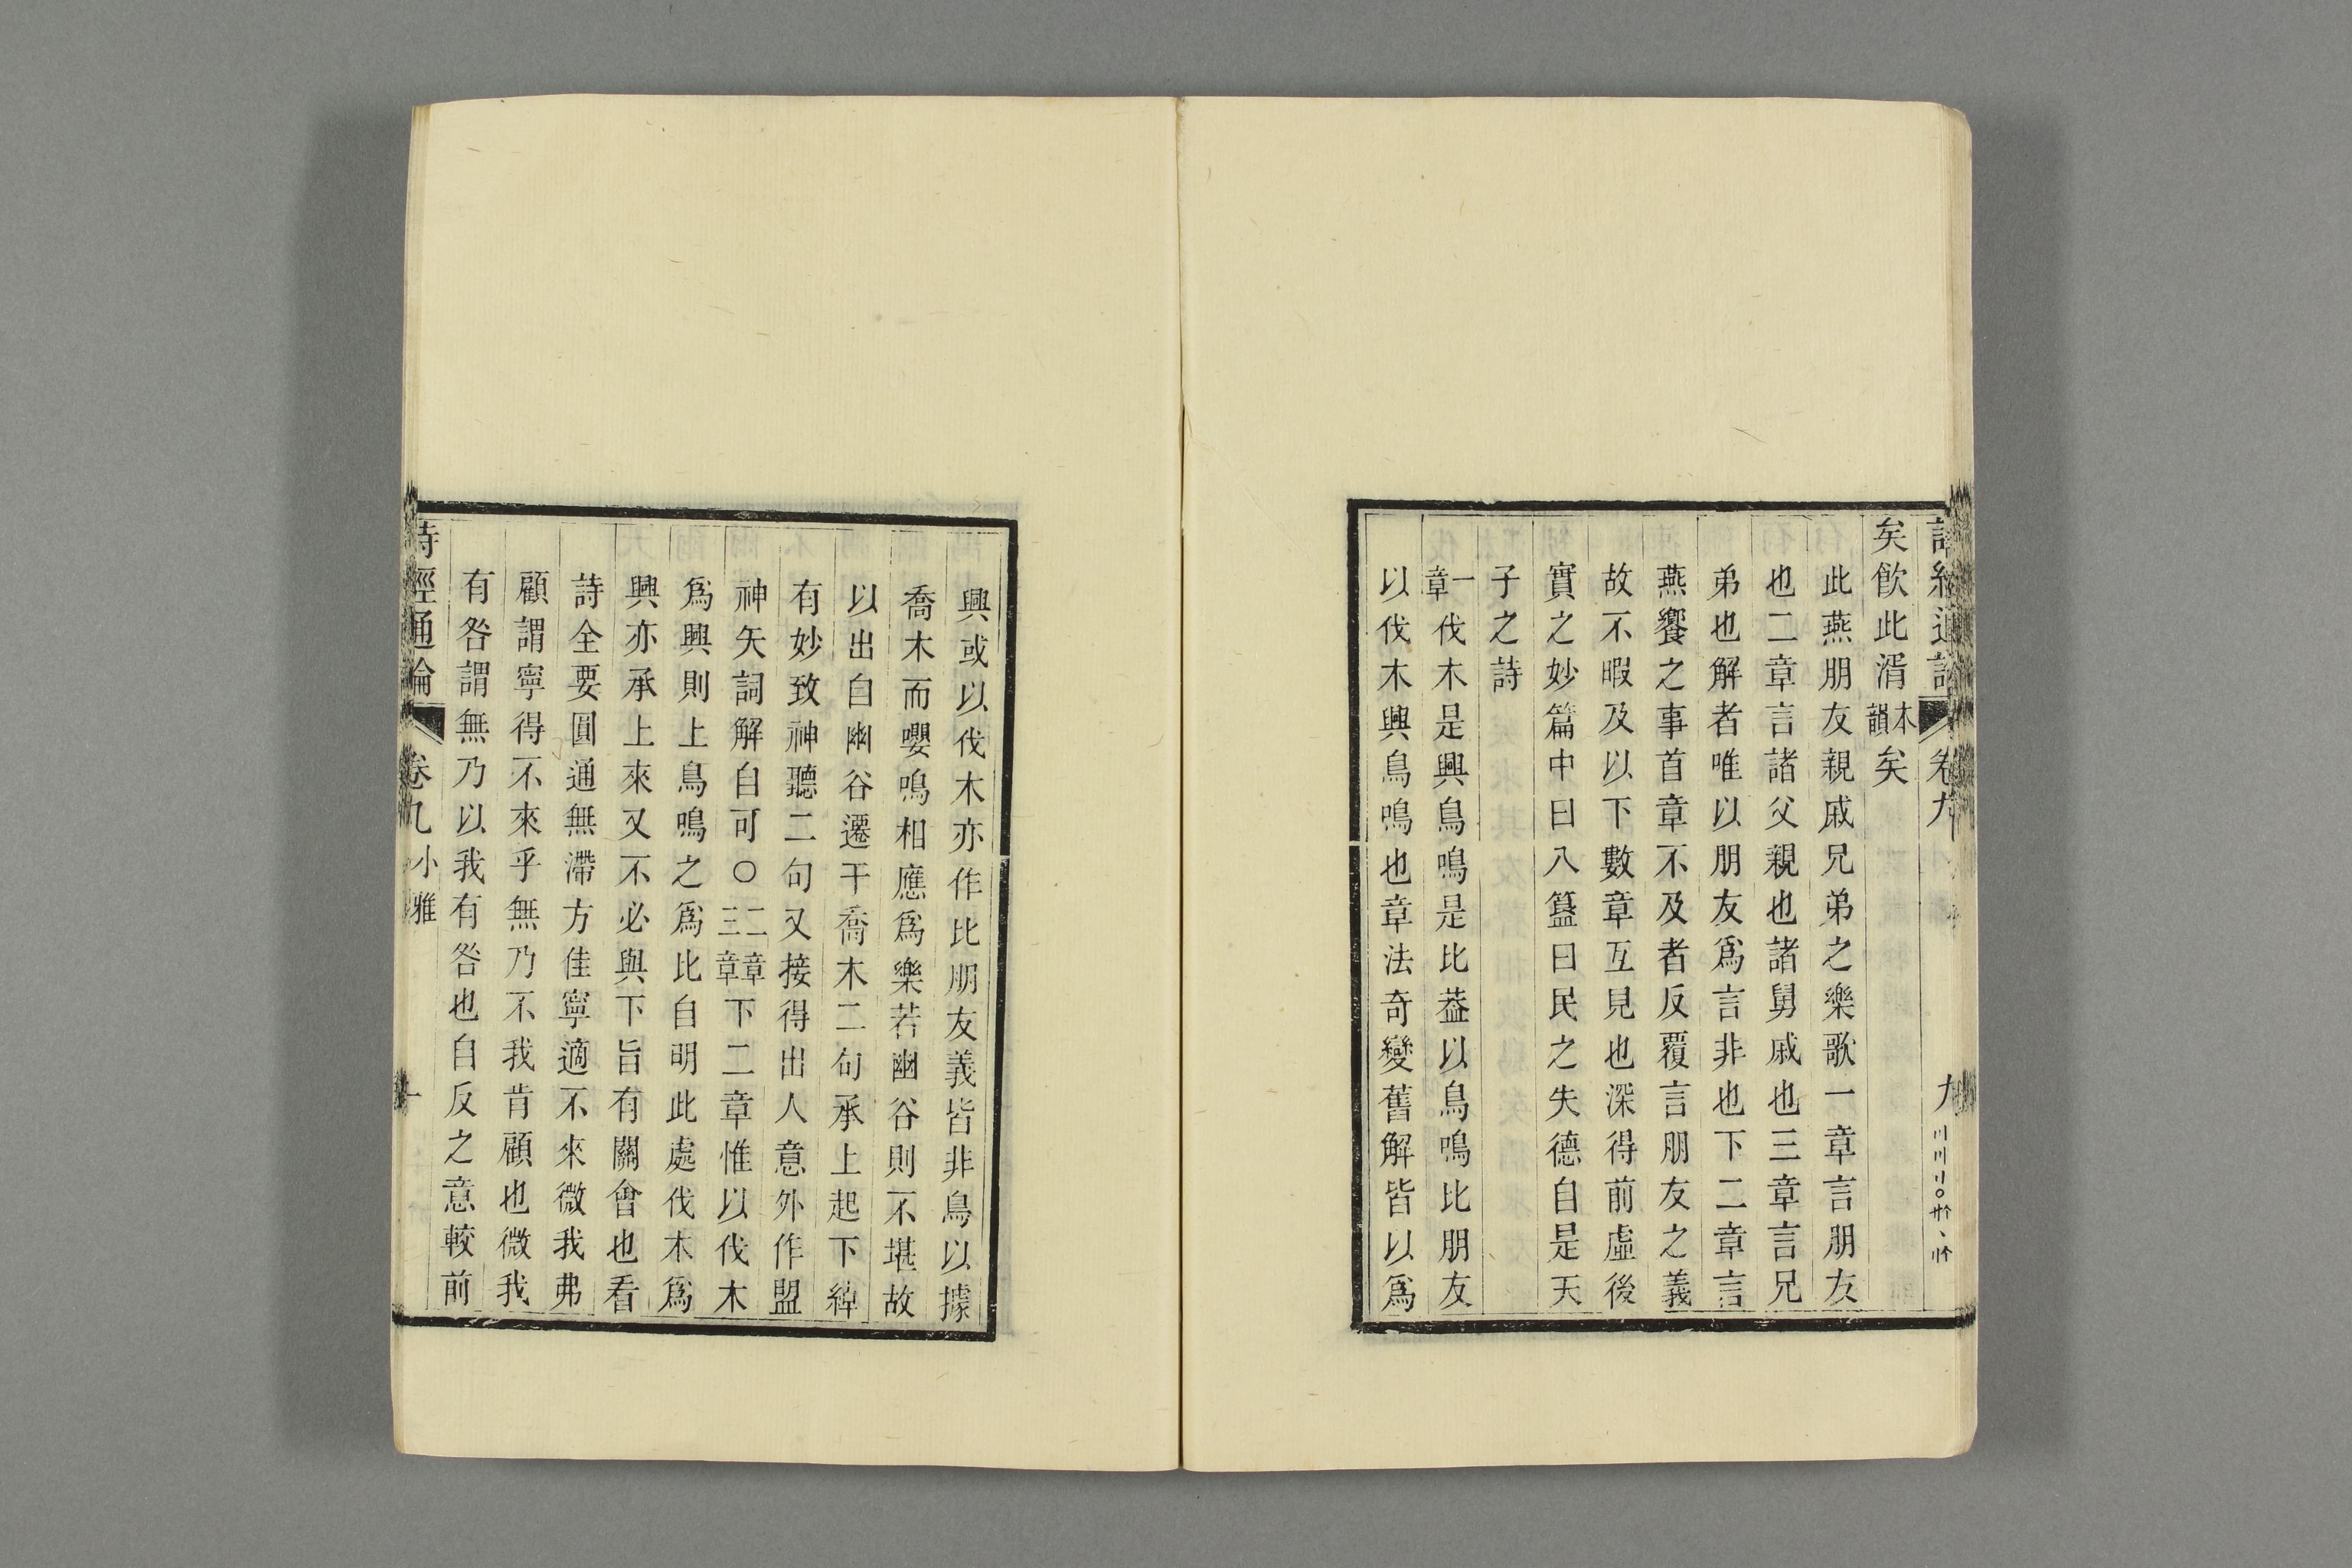 矣飲此湑本韻矣
此燕朋友親戚兄弟之樂歌一章言朋友
也二章言諸父親也諸舅戚也三章言兄
弟也解者唯以朋友爲言非也下二章言
燕饗之事首章不及者反覆言朋友之義
故不暇及以下數章互見也深得前虛後
實之妙篇中曰八簋曰民之失德自是天
子之詩
一章伐木是興鳥鳴是比葢以鳥鳴比朋友
以伐木興鳥鳴也章法奇變舊解皆以爲
興或以伐木亦作比朋友義皆非鳥以據
喬木而嚶鳴相應爲樂若幽谷則不堪故
以出自幽谷遷于喬木二句承上起下綽
有妙致神聽二句又接得出人意外作盟
神矢詞解自可○二章三章下二章惟以伐木
爲興則上鳥鳴之爲比自明此處伐木爲
興亦承上來又不必與下旨有關會也看
詩全要圓通無滯方佳寧適不來微我弗
顧謂寧得不來乎無乃不我肯顧也微我
有咎謂無乃以我有咎也自反之意較前
詩經通論 卷九 小雅